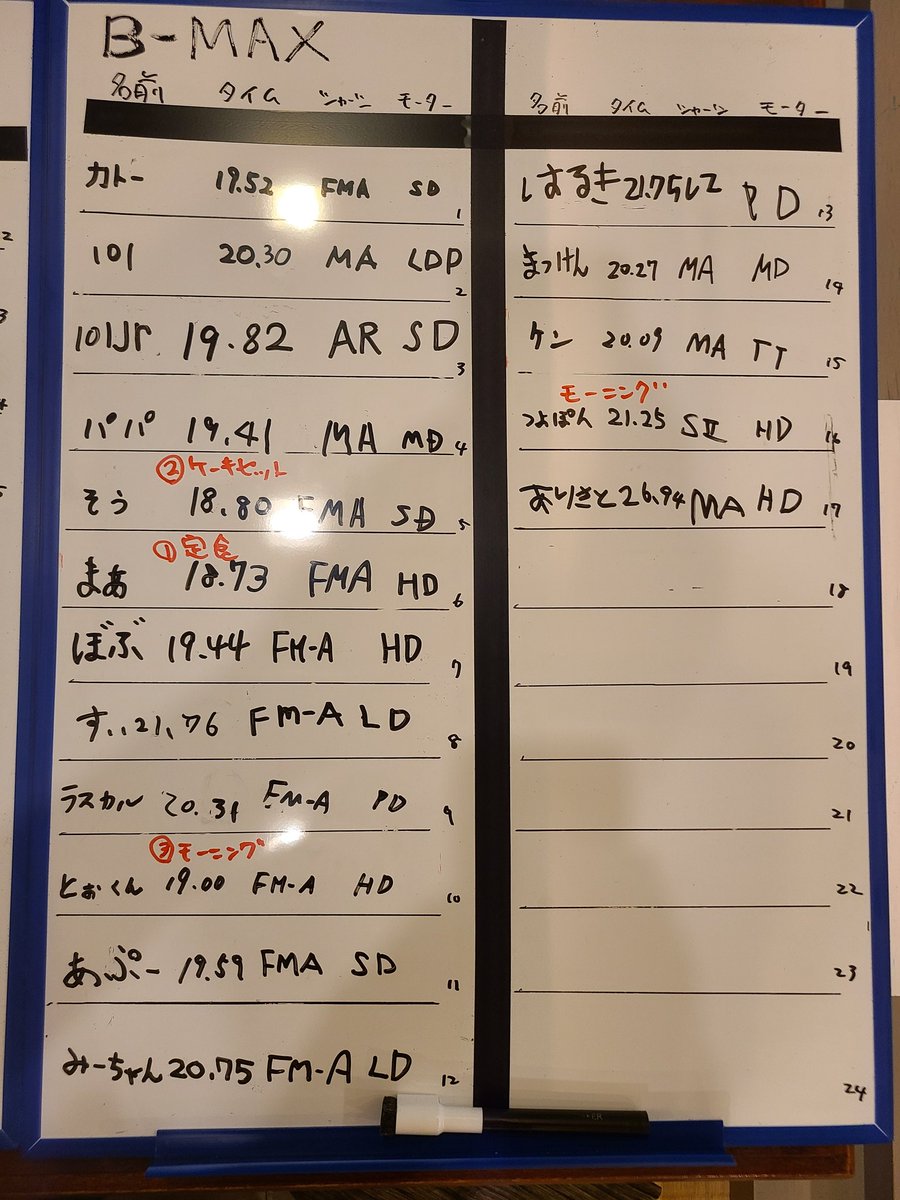 B-MAX
名前 タイム シャーシ モーター
カトー 19.52 FMA SD 1
101 20.30 MA LDP 2
101Jr 19.82 AR SD 3
パパ 19.41 MA MD 4
②ケーキセット
そう 18.80 FMA SD 5
①定食
まあ 18.73 FMA HD 6
ぼぶ 19.44 FM-A HD 7
すい 21,76 FM-A LD 8
ラスカル 20.31 FM-A PD 9
③モーニング
とおくん 19.00 FM-A HD 10
あっぷー 19.59 FMA SD 11
みーちゃん 20.75 FM-A LD 12
名前 タイム シャーシ モーター
はるき 21.75 PD 13
まっけん 20.27 MA MD 14
ケン 20.09 MA TT 15
モーニング
つよぽん 21.25 SⅡ HD 16
ありさと 26.94 MA HD 17
18
19
20
21
22
23
24